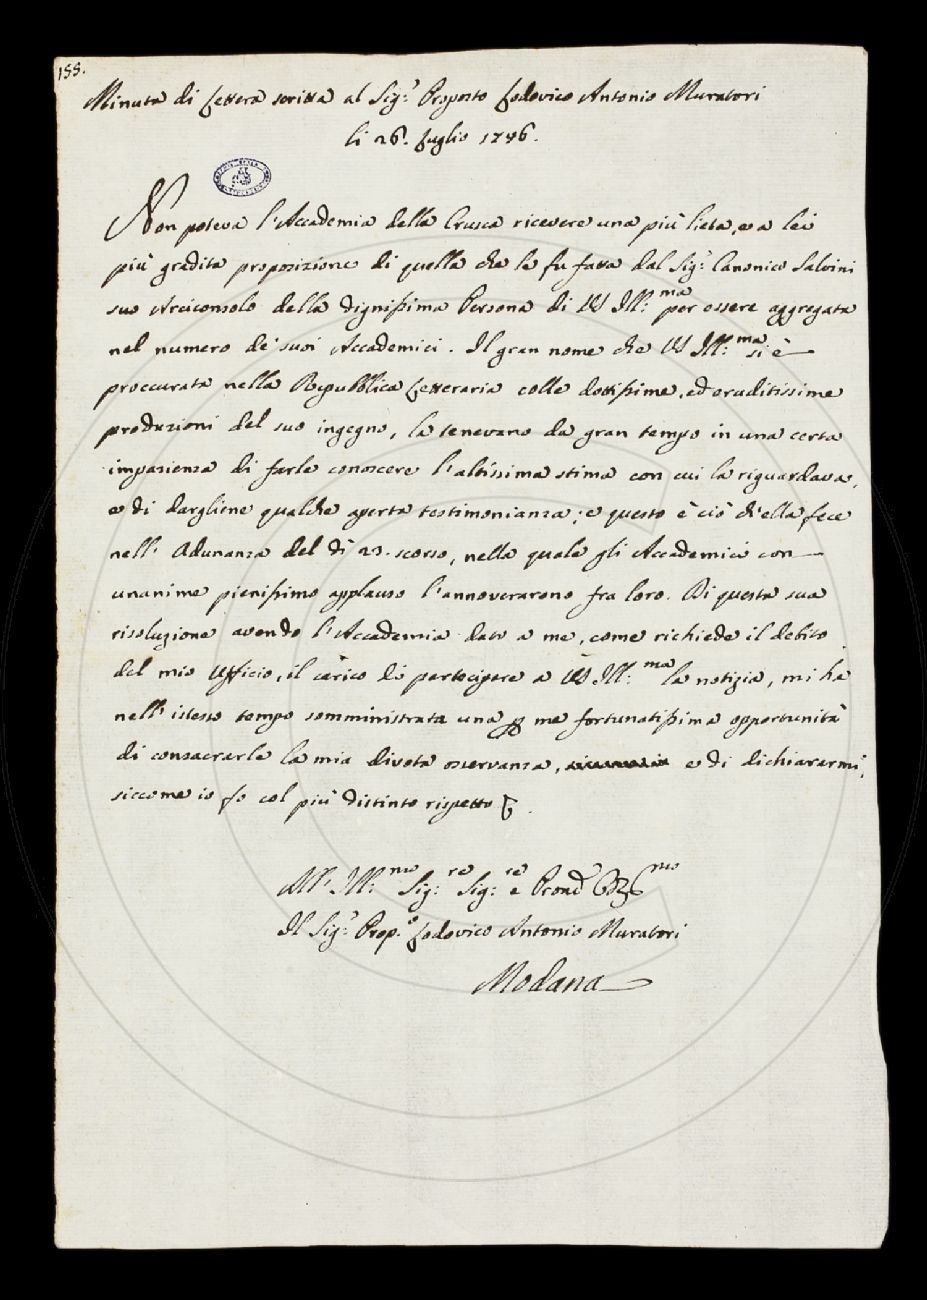 155.
Minuta di Lettera scritta al Sig.r Proposto Lodovico Antonio Muratori
li 26. Luglio 1746.
Non poteva l'Accademia della Crusca ricevere una più lieta, e a lei
più gradita proposizione di quella che le fu fatta dal Sig.r Canonico Salvini
suo Arciconsolo della dignissima Persona di VS Ill.ma per essere aggregata
nel numero de' suoi Accademici. Il gran nome che VS Ill.ma si è
proccurata nella Repubblica Letteraria colle dottissime, ed eruditissime
produzioni del suo ingegno, la tenevano da gran tempo in una certa
impazienza di farle conoscere l'altissima stima con cui la riguardava,
e di dargliene qualche aperta testimonianza; e questo è ciò ch'ella fece
nell' Adunanza del dì 23. scorso, nella quale gli Accademici con
unanime pienissimo applauso l'annoverarono fra loro. Di questa sua
risoluzione avendo l'Accademia dato a me, come richiede il debito
del mio Uffizio, il carico di partecipare a VS Ill.ma la notizia, mi ha
nell' istesso tempo somministrata una p me fortunatissima opportunità
di consacrarle la mia divota osservanza, e di dichiararmi,
siccome io fo col più distinto rispetto
All' Ill.mo Sig.re Sig.re e Pron
Il Sig.r Prop.o Lodovico Antonio Muratori
Modana